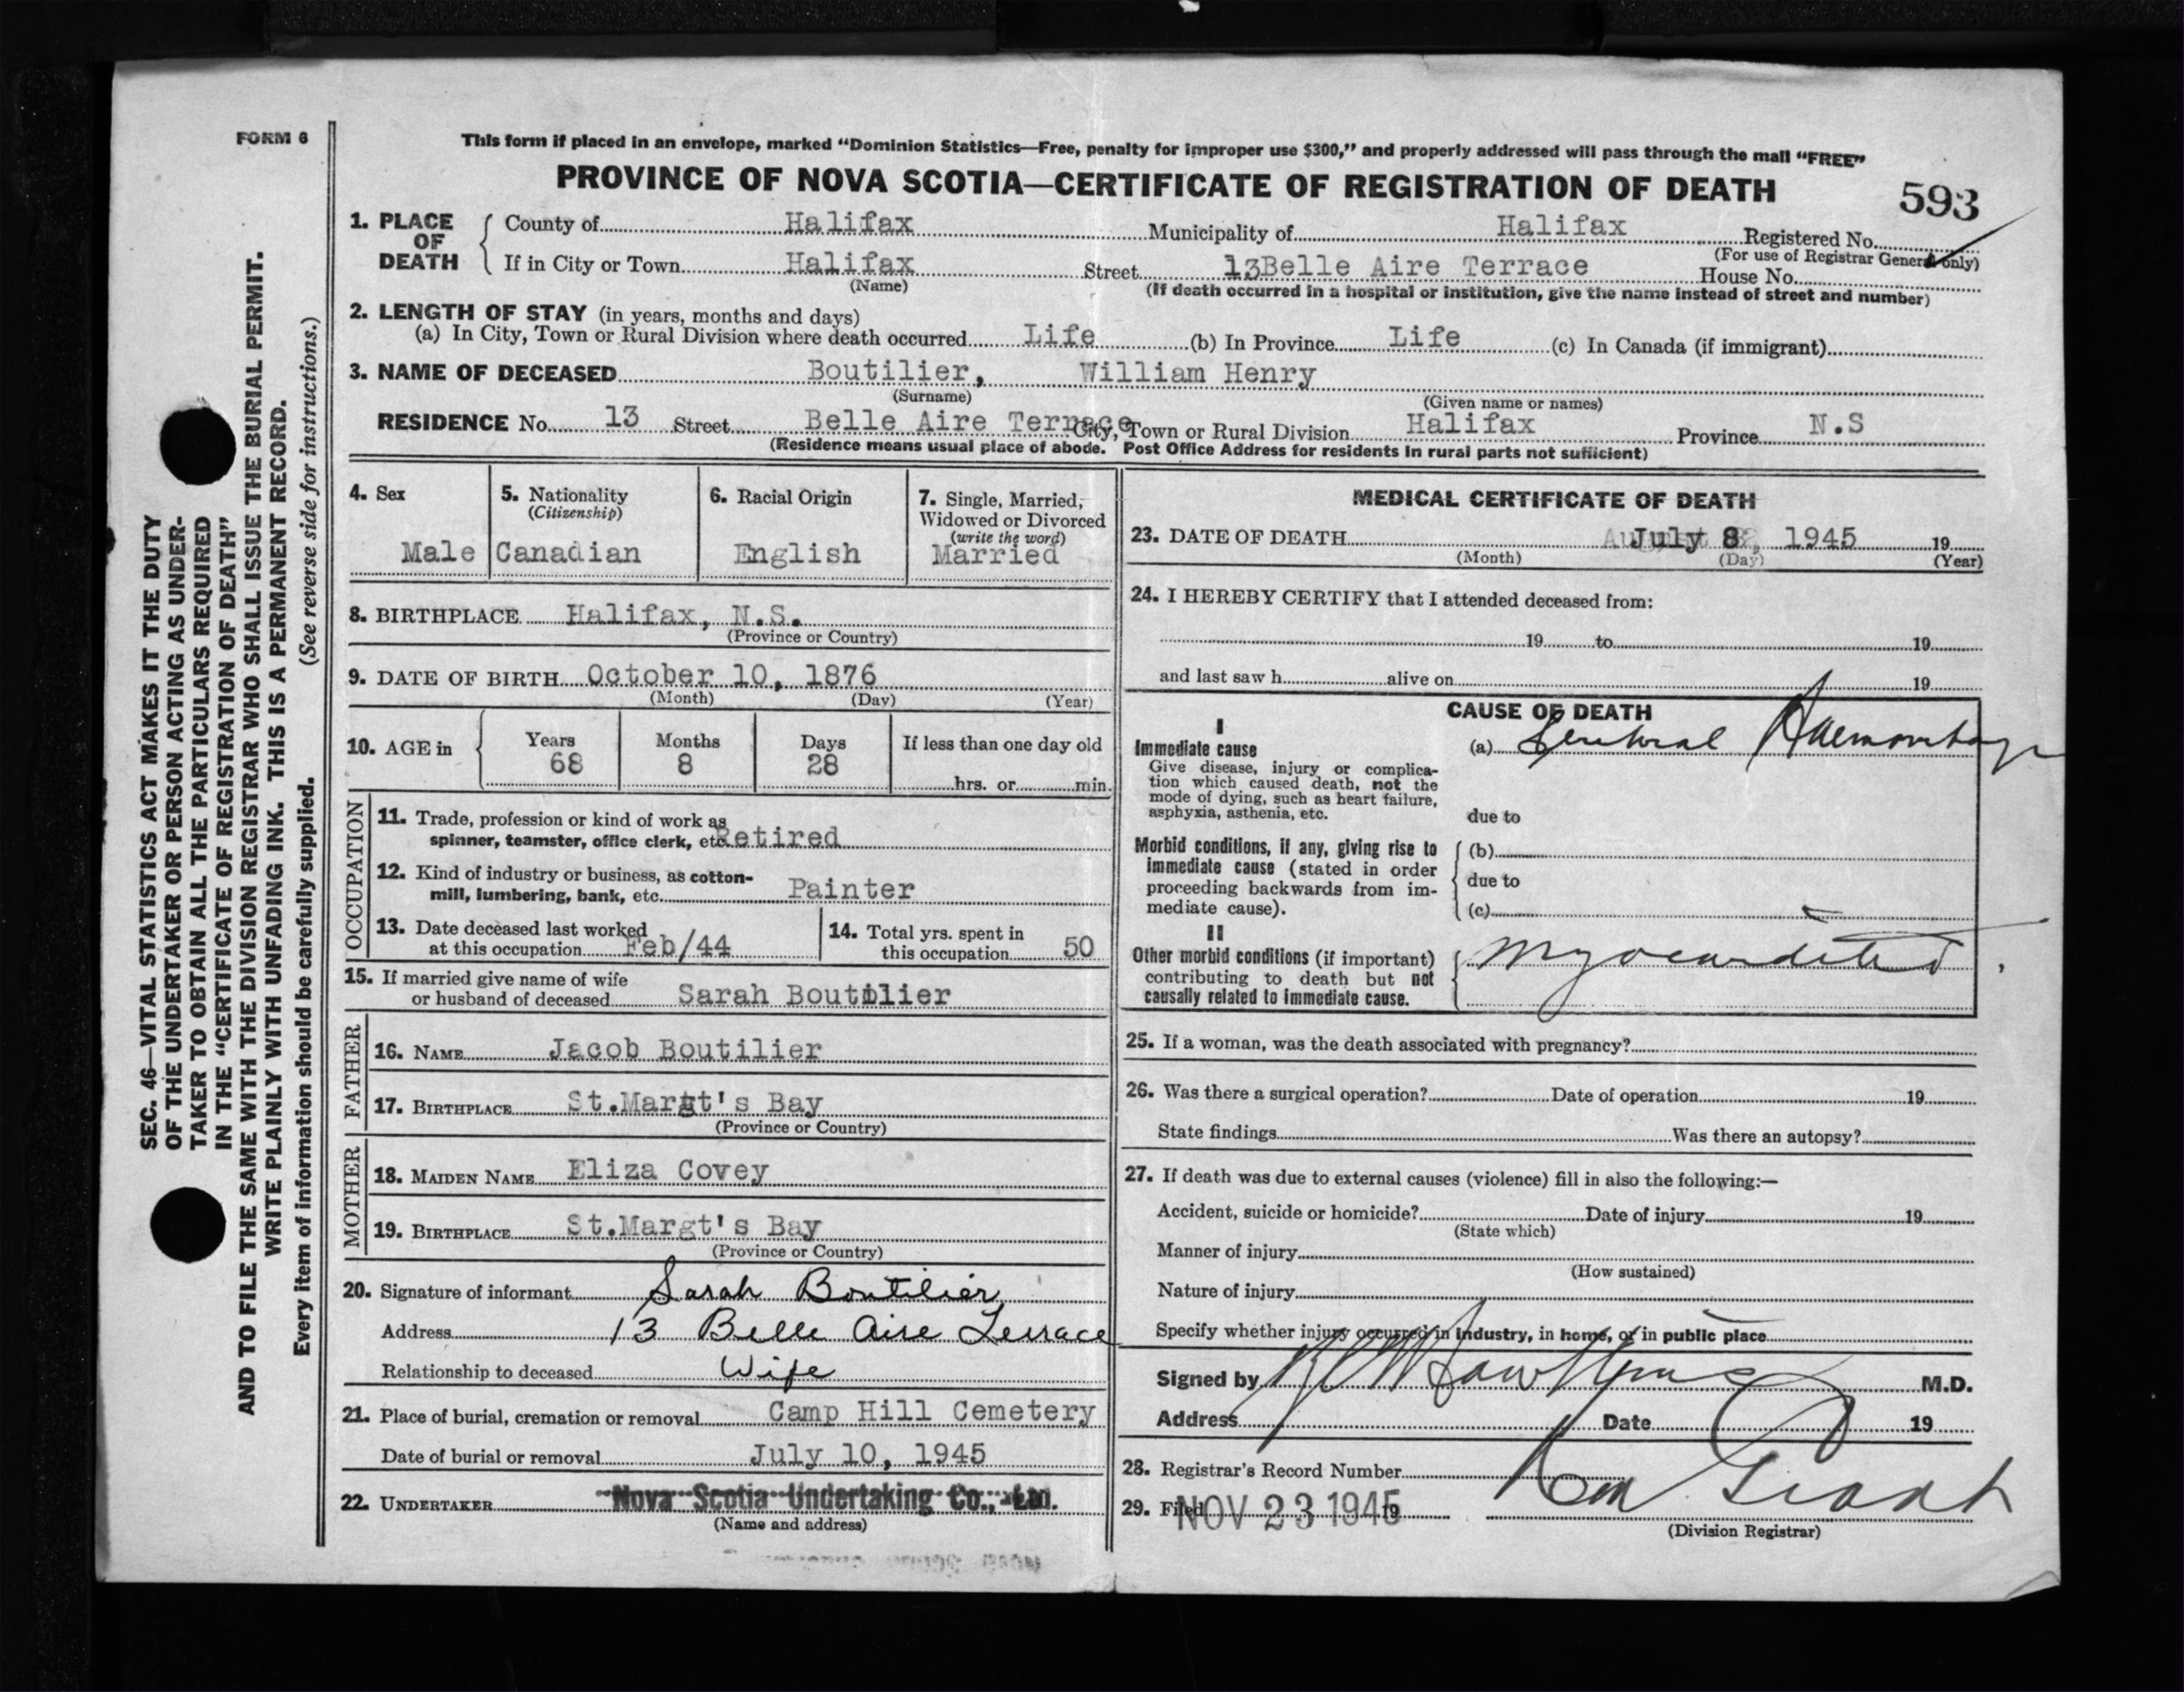 FORM 6
This form if placed in an envelope, marked “Dominion Statistics—Free, penalty for improper use $300,” and properly addressed will pass through the mail “FREE”
PROVINCE OF NOVA SCOTIA—CERTIFICATE OF REGISTRATION OF DEATH
593
1. PLACE OF DEATH
County of Halifax Municipality of Halifax Registered No.
(For use of Registrar General only)
If in City or Town Halifax Street 13Belle Aire Terrace House No.
(Name)
(If death occurred in a hospital or institution, give the name instead of street and number)
2. LENGTH OF STAY (in years, months and days)
(a) In City, Town or Rural Division where death occurred Life (b) In Province Life (c) In Canada (if immigrant)
3. NAME OF DECEASED Boutilier, William Henry
(Surname) (Given name or names)
RESIDENCE No. 13 Street Belle Aire Terrace City, Town or Rural Division Halifax Province N.S
(Residence means usual place of abode. Post Office Address for residents in rural parts not sufficient)
4. Sex
Male
5. Nationality
(Citizenship)
Canadian
6. Racial Origin
English
7. Single, Married,
Widowed or Divorced
(write the word)
Married
8. BIRTHPLACE Halifax, N.S.
(Province or Country)
9. DATE OF BIRTH October 10, 1876
(Month) (Day) (Year)
10. AGE in
Years Months Days If less than one day old
68 8 28
hrs. or min.
OCCUPATION
11. Trade, profession or kind of work as
spinner, teamster, office clerk, etc. Retired
12. Kind of industry or business, as cotton-
mill, lumbering, bank, etc. Painter
13. Date deceased last worked
at this occupation Feb/44
14. Total yrs. spent in
this occupation 50
15. If married give name of wife
or husband of deceased Sarah Boutilier
FATHER
16. NAME Jacob Boutilier
17. BIRTHPLACE St.Margt's Bay
(Province or Country)
MOTHER
18. MAIDEN NAME Eliza Covey
19. BIRTHPLACE St.Margt's Bay
(Province or Country)
20. Signature of informant Sarah Boutilier
Address 13 Belle Aire Terrace
Relationship to deceased Wife
21. Place of burial, cremation or removal Camp Hill Cemetery
Date of burial or removal July 10, 1945
22. UNDERTAKER Nova Scotia Undertaking Co., Ltd.
(Name and address)
MEDICAL CERTIFICATE OF DEATH
23. DATE OF DEATH July 8, 1945 19
(Month) (Day) (Year)
24. I HEREBY CERTIFY that I attended deceased from:
19 to 19
and last saw h alive on 19
CAUSE OF DEATH
I
Immediate cause
Give disease, injury or complica-
tion which caused death, not the
mode of dying, such as heart failure,
asphyxia, asthenia, etc.
(a) Cerebral Haemorrhage
due to
Morbid conditions, if any, giving rise to
immediate cause (stated in order
proceeding backwards from im-
mediate cause).
(b)
due to
(c)
II
Other morbid conditions (if important)
contributing to death but not
causally related to immediate cause.
Myocarditis
25. If a woman, was the death associated with pregnancy?
26. Was there a surgical operation? Date of operation 19
State findings Was there an autopsy?
27. If death was due to external causes (violence) fill in also the following:—
Accident, suicide or homicide? Date of injury 19
(State which)
Manner of injury
(How sustained)
Nature of injury
Specify whether injury occurred in industry, in home, or in public place
Signed by M.D.
Address Date 19
28. Registrar's Record Number
29. Filed NOV 23 1945 19
(Division Registrar)
SEC. 46—VITAL STATISTICS ACT MAKES IT THE DUTY
OF THE UNDERTAKER OR PERSON ACTING AS UNDER-
TAKER TO OBTAIN ALL THE PARTICULARS REQUIRED
IN THE “CERTIFICATE OF REGISTRATION OF DEATH”
AND TO FILE THE SAME WITH THE DIVISION REGISTRAR WHO SHALL ISSUE THE BURIAL PERMIT.
WRITE PLAINLY WITH UNFADING INK. THIS IS A PERMANENT RECORD.
Every item of information should be carefully supplied. (See reverse side for instructions.)